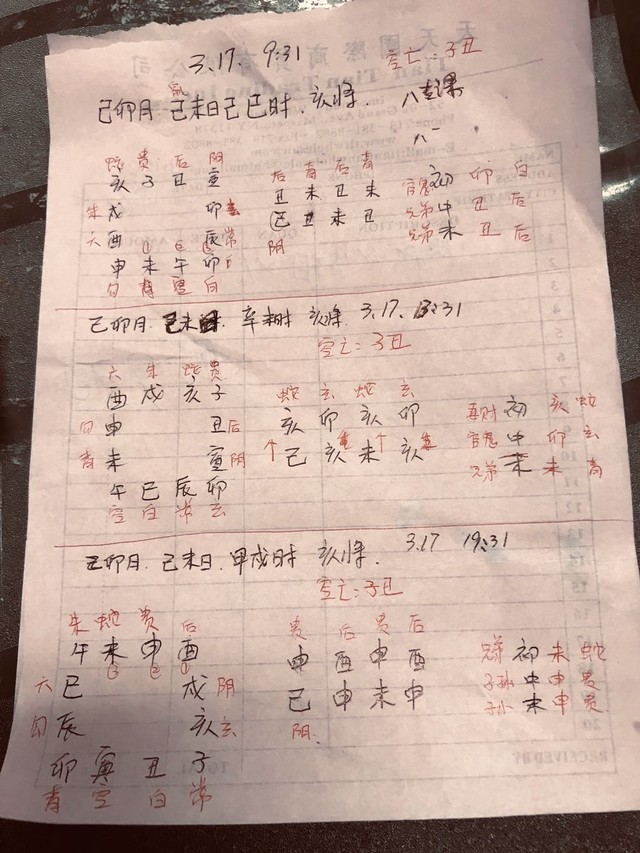 3.17. 9:31
空亡:子丑
己卯月 己未日己巳时. 亥将.
八专课
八一
蛇 贵 后 阴
亥 子 丑 寅
朱 戌 卯 玄
六 酉 ① ② ③ 辰 常
申 未 午
勾 青 白
后 青 后 青
丑 未 丑 未
己 丑 未 丑
阴
官鬼 初 卯 白
兄弟 中 丑 后
兄弟 末 丑 后
己卯月. 辛未时 亥将 3.17. 13:31
空亡:子丑
六 朱 蛇 贵
酉 戌 亥 子
勾 申 丑 后
青 未 寅 阴
午 巳 辰 卯
空 白 常 玄
蛇 玄 蛇 玄
亥 卯 亥 卯
己 亥 未 亥
妻财 初 亥 蛇
官鬼 中 卯 玄
兄弟 末 未 青
己卯月. 己未日. 甲戌时 亥将. 3.17 19:31
空亡:子丑
朱 蛇 贵 后
午 未 申 酉
③ ② ①
六 巳 戌 阴
勾 辰 亥 玄
卯 寅 丑 子
青 空 白 常
贵 后 贵 后
申 酉 申 酉
己 申 未 申
阴.
兄弟 初 未 蛇
子孙 中 申 贵
子孙 末 申 贵
RECEIVED BY